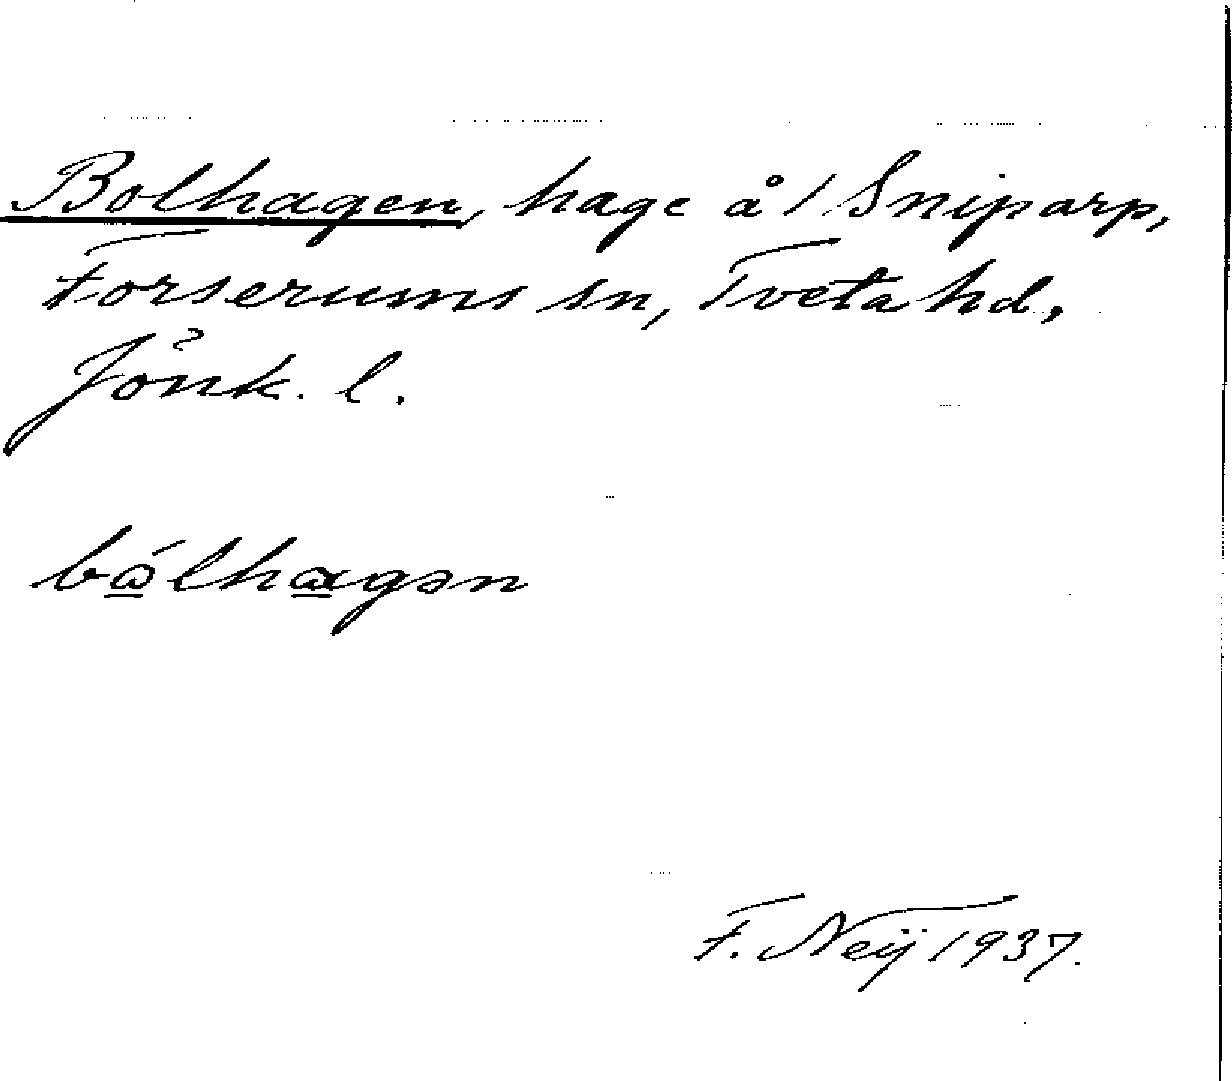 Bolhagen, hage å 1 Sniparp,
Forserums sn, Tveta hd,
Jönk. l.
bώ̲lhα̲gən
F. Neij 1937.